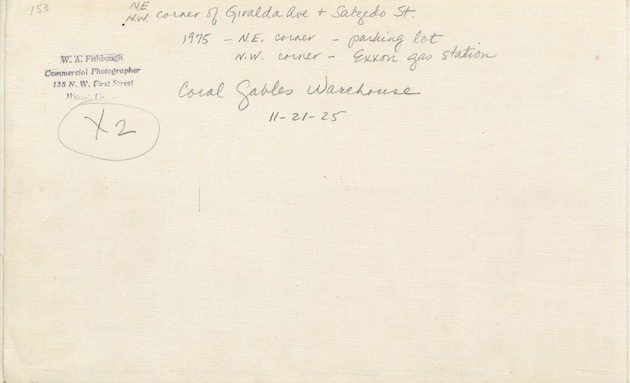 153
N.E.
N.W. corner of Giralda Ave + Salzedo St.
1975 - N.E. corner - parking lot
N.W. corner - Exxon gas station
W. A. Fishbaugh
Commercial Photographer
138 N. W. First Street
Miami,
Coral Gables Warehouse
11-21-25
X2